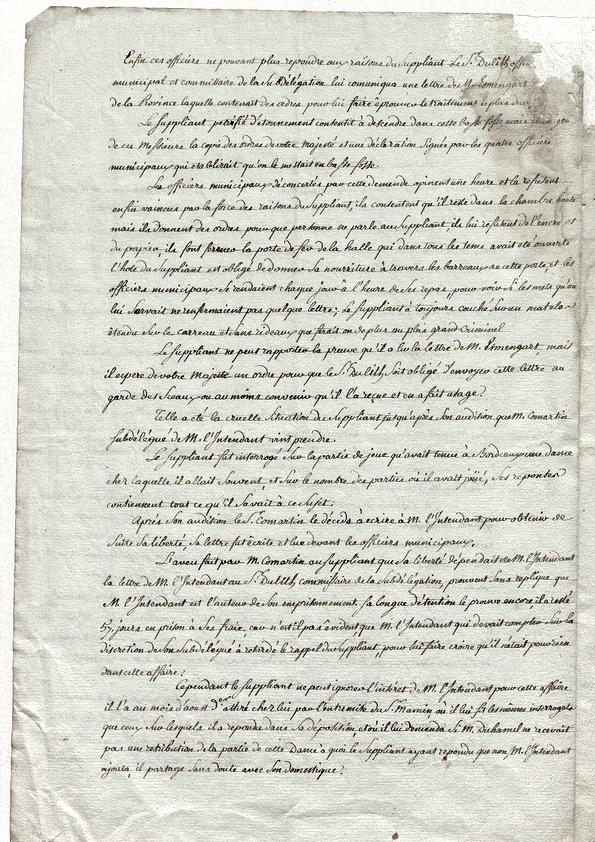 Enfin ces officiers ne pouvant plus repondre aux raisons du Suppliant Le Sr. Dulilh
municipal et commissaire de la Subdélégation lui comuniqua une lettre de M. Esmengart
de la Province laquelle contenait des ordres pour lui faire éprouver le traitement le plus dur
Le Suppliant petrifié d'étonnement consentit à descendre dans cette basse fosse mais
de ces Messieurs la copie des ordres de votre majesté et une déclaration Signée par les quatre officiers
municipaux qui établirait qu'on le mettait en basse-fosse.
Les officiers municipaux déconcertés par cette demande opinent une heure et la refusent
enfin vaincus par la force des raisons du Suppliant, ils consentent qu'il reste dans la chambre haute
mais ils donnent des ordres pour que personne ne parle au Suppliant, ils lui refusent de l'encre et
du papier, ils font fermer la porte de fer de la halle qui dans tous les tems avait été ouverte
l'hôte du Suppliant est obligé de donner Sa nourriture à travers les barreaux de cette porte, et les
officiers municipaux Se rendaient chaque jour à l'heure de Ses repas, pour voir Si les mets qu'on
lui Servait ne renfermaient pas quelque lettre; Le Suppliant à toujours couché Sur un matelas
étendu Sur le carreau et Sans rideaux que ferait on de plus au plus grand Criminel
Le Suppliant ne peut rapporter la preuve qu'il a lu la lettre de M. Esmengart, mais
il espere de votre Majesté un ordre pour que le Sr. Dulilh Soit obligé d'envoyer cette lettre au
garde des Sceaux ou au moins convenir qu'il l'a reçue et en a fait usage.
Telle a été la cruelle Situation du Suppliant jusqu'après Son audition que M. Comartin
Subdélégué de M. l'Intendant vint prendre.
Le Suppliant fut interrogé Sur la partie de jeux qu'avait tenue à Bordeaux une dame
chez laquelle il allait Souvent, et Sur le nombre des parties où il avait joüé, Ses reponses
contiennent tout ce qu'il Savait à ce Sujet.
Après Son audition le Sr. Comartin le décida à écrire à M. l'Intendant pour obtenir de
Suite Sa liberté, Sa lettre fut écrite et lue devant les officiers municipaux.
L'aveu fait par M. Comartin au Suppliant que Sa liberté dépendait de M. l'Intendant
la lettre de M. l'Intendant au Sr. Dulilh commissaire de la Subdélégation, prouvent Sans réplique que
M. l'Intendant est l'auteur de Son emprisonnement, Sa longue détention le prouve encore, il a resté
57. jours en prison à Ses fraix, car n'est il pas évident que M. l'Intendant qui devait compter Sur la
discretion de Son Subdélégué à retardé le rappel du Suppliant, pour lui faire croire qu'il n'était pour rien
dans cette affaire?
Cependant le Suppliant ne peut ignorer l'intérêt de M. l'Intendant pour cette affaire
il l'a au mois d'aoust dernier attiré chez lui par l'entremise du Sr. Mamin, où il lui fit les mêmes interrogats
que ceux Sur lesquels il a repondu dans Sa déposition, et où il lui demanda Si M. Duhamel ne recevait
pas une retribution de la partie de cette Dame à quoi le Suppliant ayant repondu que non, M. l'Intendant
ajouta, il partage Sans doute avec Son domestique?